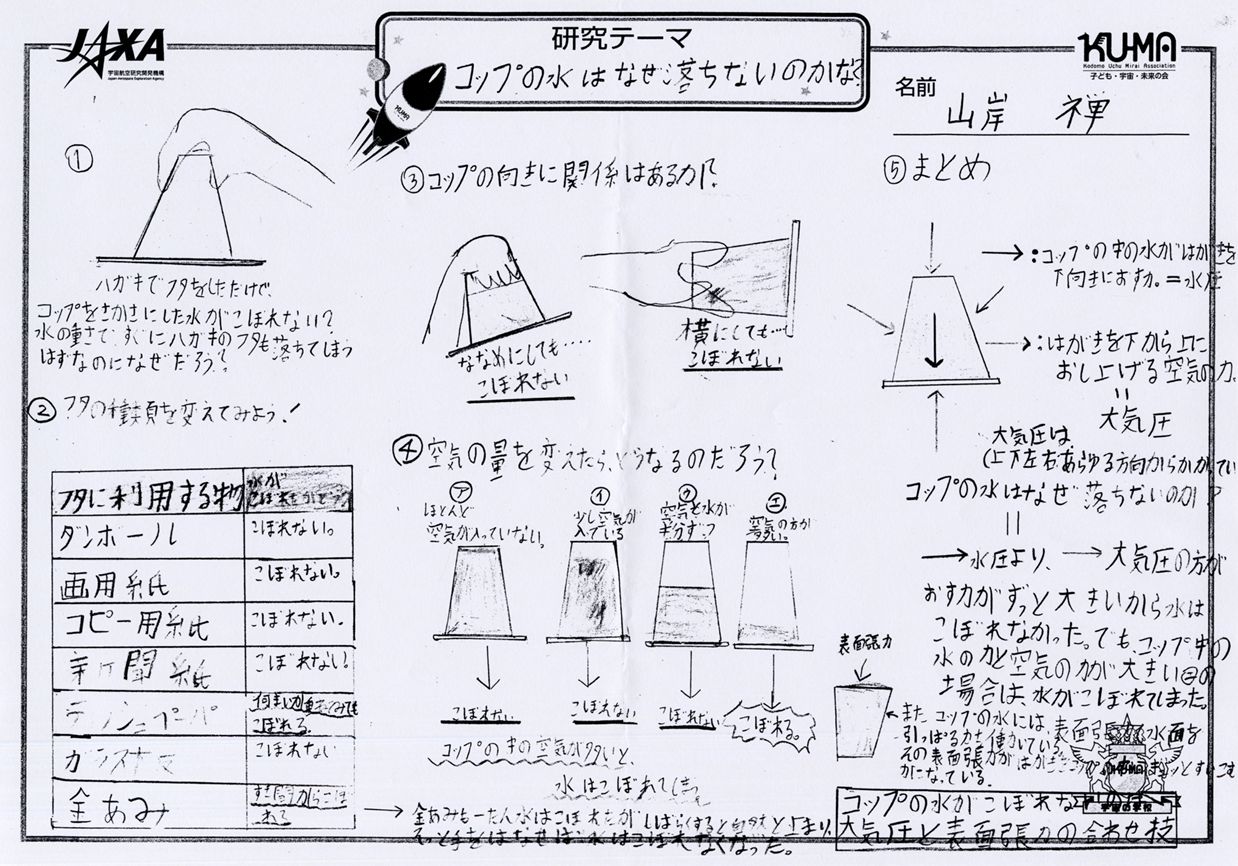 JAXA
宇宙航空研究開発機構
Japan Aerospace Exploration Agency
研究テーマ
コップの水はなぜ落ちないのかな?
KUMA
KU-MA
Kodomo Uchu Mirai Association
子ども・宇宙・未来の会
名前
山岸 禅
①
ハガキでフタをしただけで、
コップをさかさにした水がこぼれない?
水の重さで、すぐにハガキのフタも落ちてしまう
はずなのになぜだろう?
② フタの種類を変えてみよう!
フタに利用する物 水が
こぼれたかどうか
ダンボール こぼれない。
画用紙 こぼれない。
コピー用紙 こぼれない。
新聞紙 こぼれない。
ティッシュペーパー
こぼれる
こぼれない
金あみ
③ コップの向きに関係はあるか!?
ななめにしても‥‥
こぼれない
横にしても‥‥
こぼれない
④ 空気の量を変えたら、どうなるのだろう?
ア
ほとんど
空気が入っていない。
こぼれない
イ
少し空気が
入っている
こぼれない
ウ
空気と水が
半分ずつ
こぼれない
エ
空気の方が
多い。
こぼれる。
コップの中の空気が多いと、
水はこぼれてしまう
→金あみも一たん水はこぼれたがしばらくすると自然と止まり、
そっと手をはなせば水はこぼれなくなった。
⑤ まとめ
→:コップの中の水がはがきを
下向きにおす力。=水圧
→:はがきを下から上に
おし上げる空気の力。
=
大気圧
大気圧は、
(上下左右、あらゆる方向からかかってい
コップの水はなぜ落ちないのか?
=
→水圧より、→大気圧の方が
おす力がずっと大きいから水は
こぼれなかった。でも、コップの中の
水の力と空気の力が大きい
場合は、水がこぼれてしまった。
表面張力
また、コップの水には、表面張力 水面を
引っぱる力も働いている。
その表面張力がはがきと
力になっている。
宇宙の学校
コップの水がこぼれない
大気圧と表面張力の合わせ技